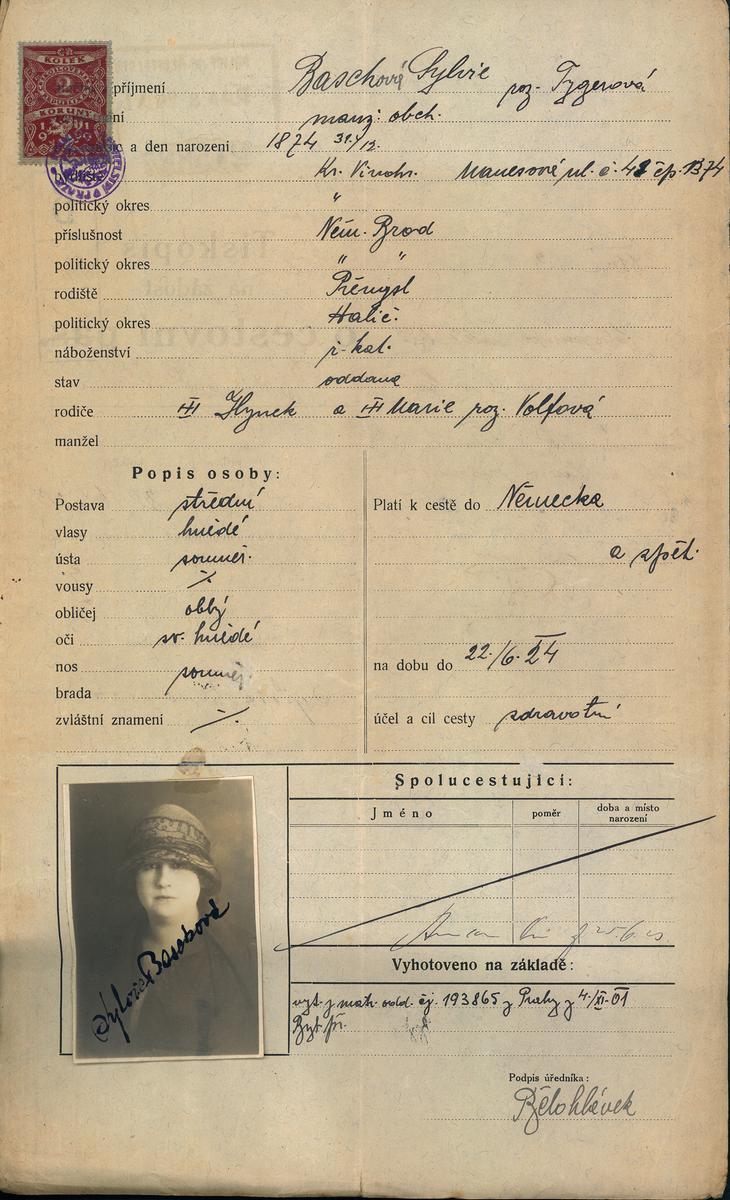 KOLEK
KORUNY
příjmení Baschová Sylvie roz. Tygerová
manž. obch.
a den narození 1874 31./12.
bydliště Kr. Vinohr. Manesová ul. č. 42 čp. 1374
politický okres "
příslušnost Něm. Brod
politický okres " "
rodiště Přemysl
politický okres Halič.
náboženství ř. kat.
stav oddana
rodiče Hynek a Marie roz. Volfová
manžel
Popis osoby:
Postava střední
vlasy hnědé
ústa souměr.
vousy ./.
obličej oblý
oči sv. hnědé
nos souměr.
brada
zvláštní znamení ./.
Platí k cestě do Německa
a zpět.
na dobu do 22./6. 24
účel a cil cesty zdravotní
Spolucestující:
Jméno poměr doba a místo narození
Sylvie Baschová
Vyhotoveno na základě:
vyt. z matr. odd. čj. 193865 z Prahy z 4./XI. 01
Byt. př.
Podpis úředníka:
Bělohlávek